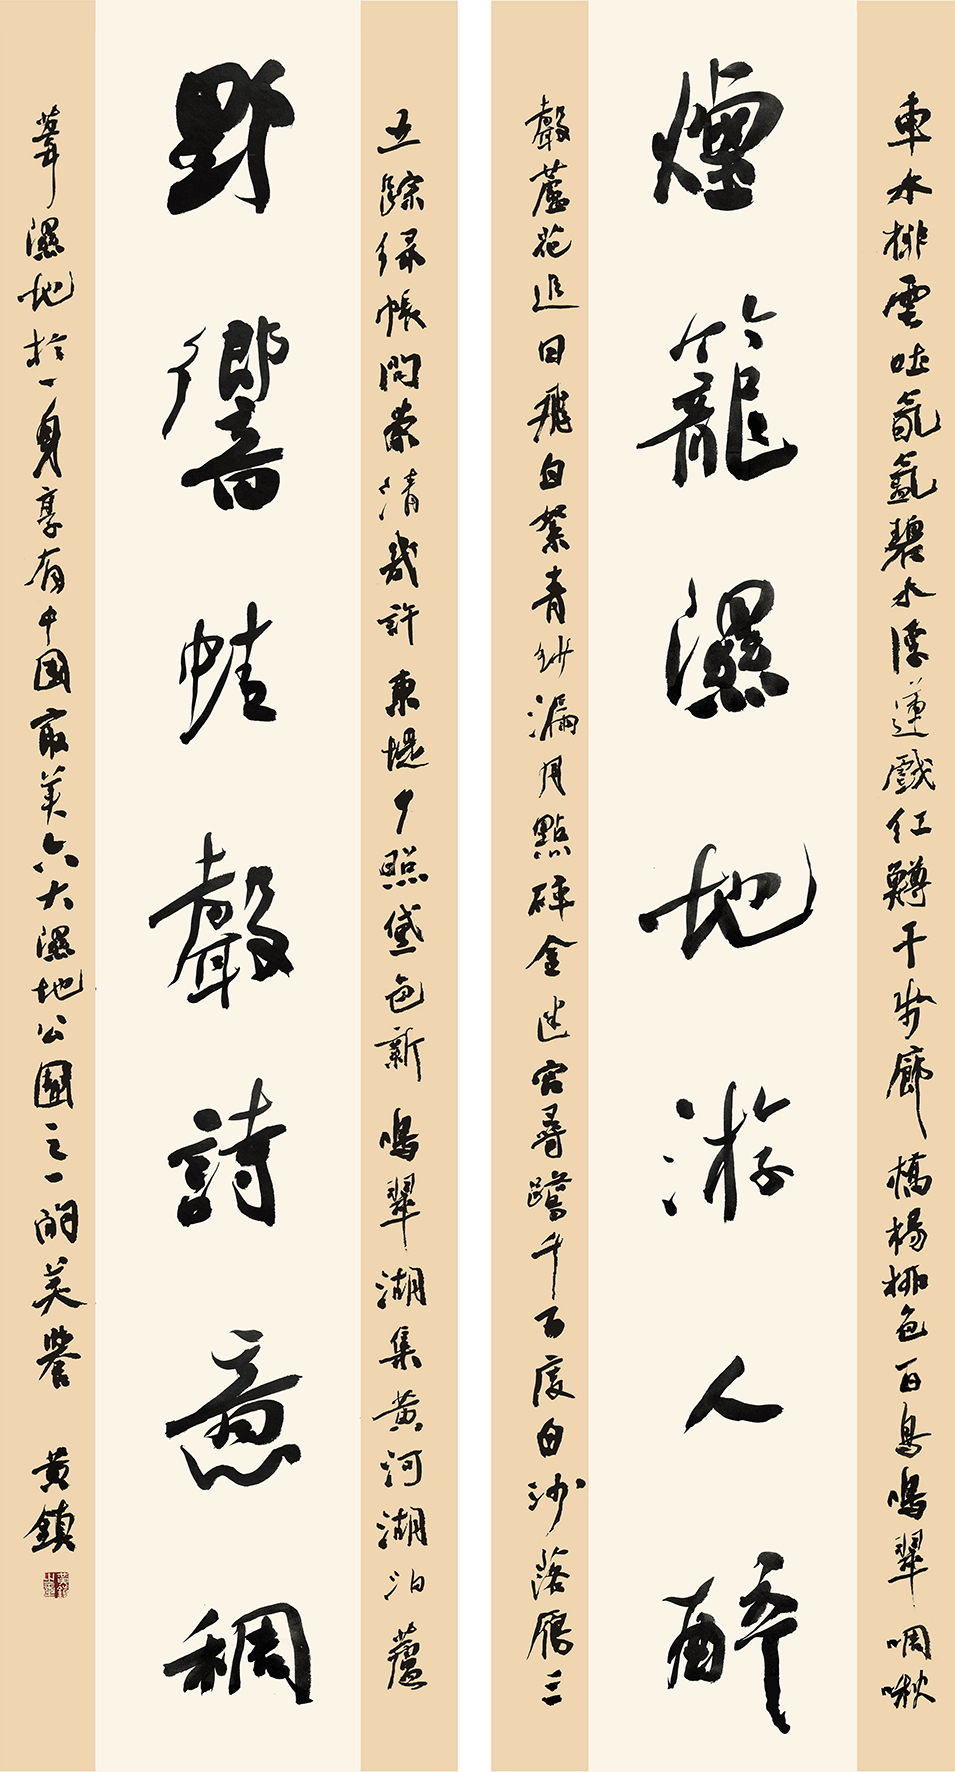 車水排雲吐氤氳碧水浮蓮戲紅鱒千步廊橋楊柳色百鳥鳴翠啁啾
煙籠濕地游人醉
聲蘆花追日飛白絮青紗漏月點碎金迷宮尋千百度白沙落雁三
五踪綠帳問清幾許東堤夕照黛色新鳴翠湖集黃河湖泊蘆
野響蛙聲詩意稠
葦濕地於一身享有中國最美六大濕地公園之一的美譽 黃鎮